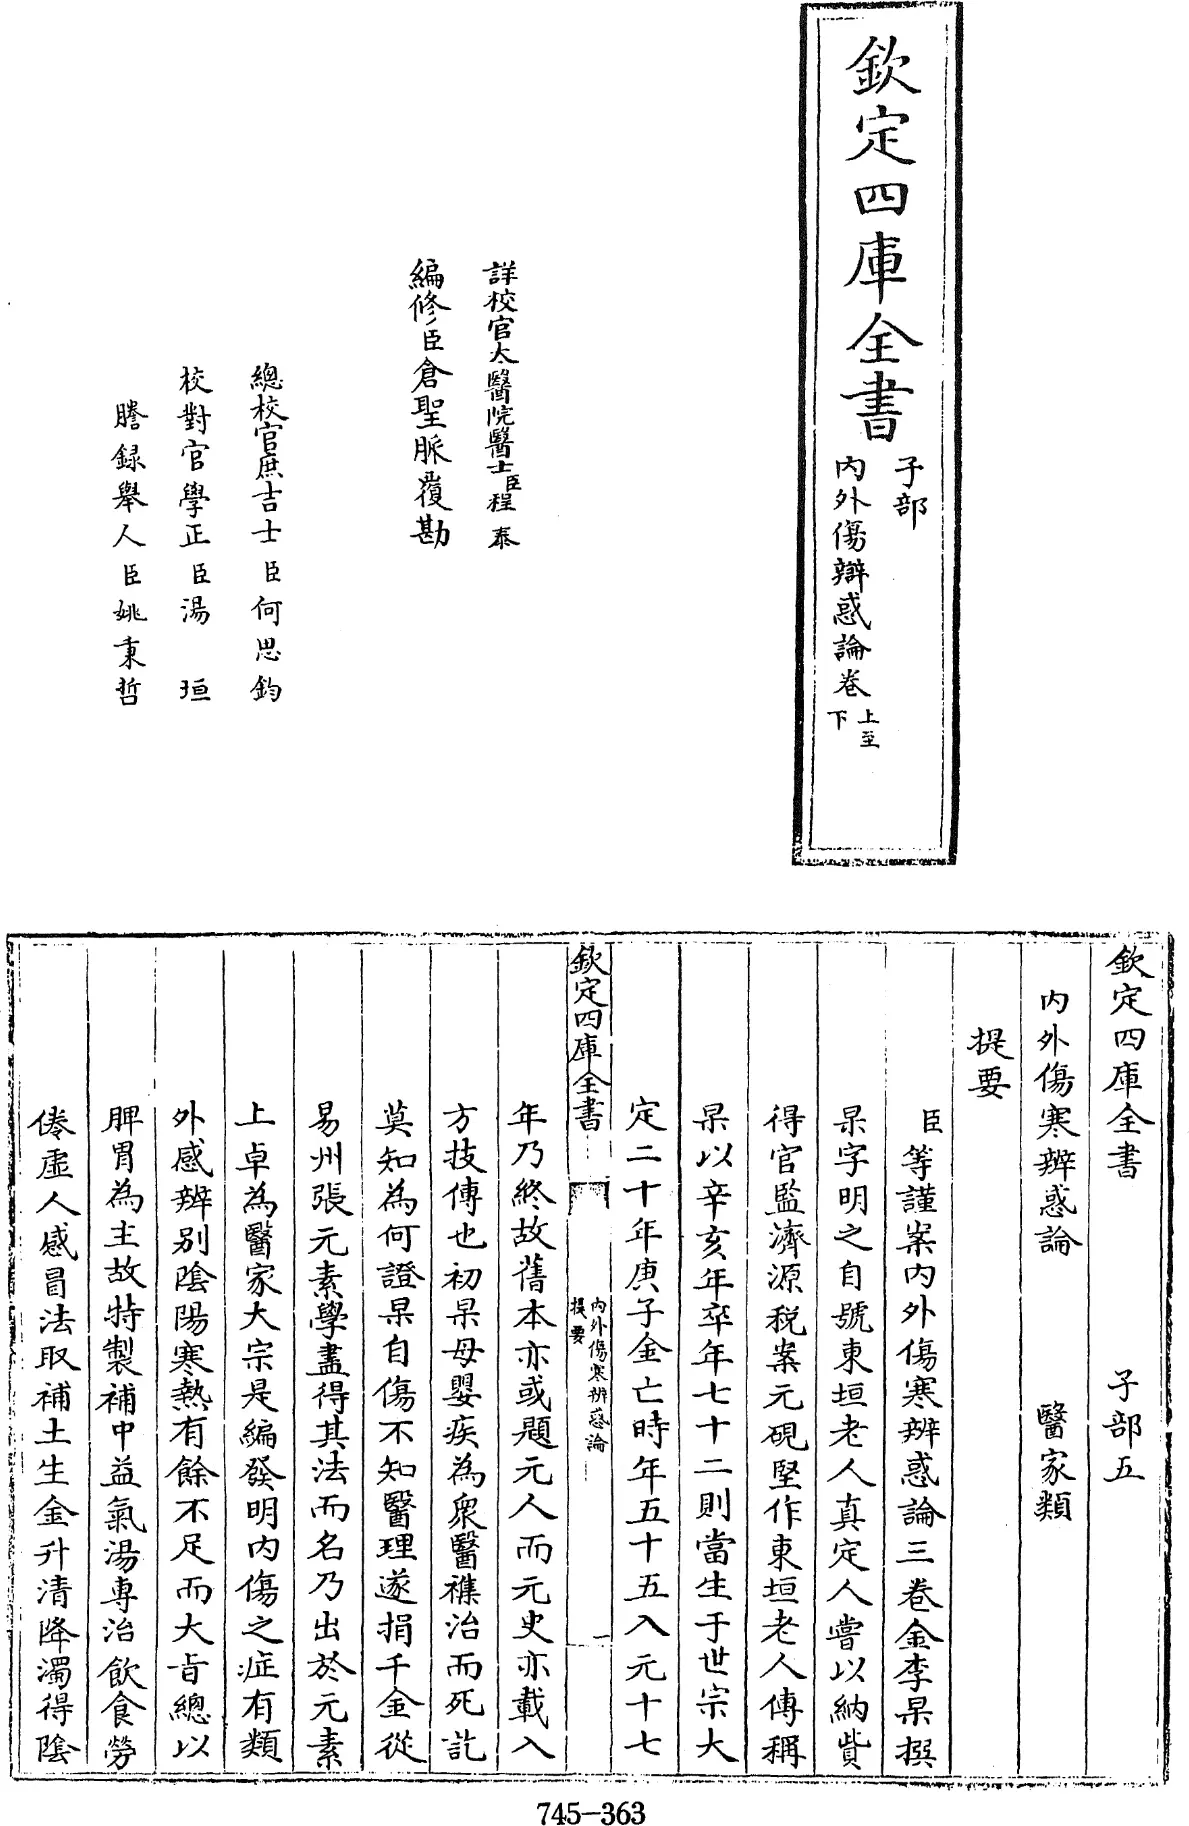 欽定四庫全書
子部
内外傷辯惑論卷上至下
詳校官太醫院醫士臣程泰
編修臣倉聖脈覆勘
總校官庶吉士臣何思鈞
校對官學正臣湯垣
謄録舉人臣姚秉哲
欽定四庫全書 子部五
内外傷寒辨惑論 醫家類
提要
臣等謹案内外傷寒辨惑論三卷金李杲撰
杲字明之自號東垣老人真定人嘗以納貲
得官監濟源税案元硯堅作東垣老人傳稱
杲以辛亥年卒年七十二則當生于世宗大
定二十年庚子金亡時年五十五入元十七
欽定四庫全書 内外傷寒辨惑論 提要 一
年乃終故舊本亦或題元人而元史亦載入
方技傳也初杲母嬰疾為衆醫襍治而死訖
莫知為何證杲自傷不知醫理遂捐千金從
易州張元素學盡得其法而名乃出於元素
上卓為醫家大宗是編發明内傷之症有類
外感辨别陰陽寒熱有餘不足而大旨總以
脾胃為主故特製補中益氣湯專治飲食勞
倦虛人感冒法取補土生金升清降濁得陰
745-363